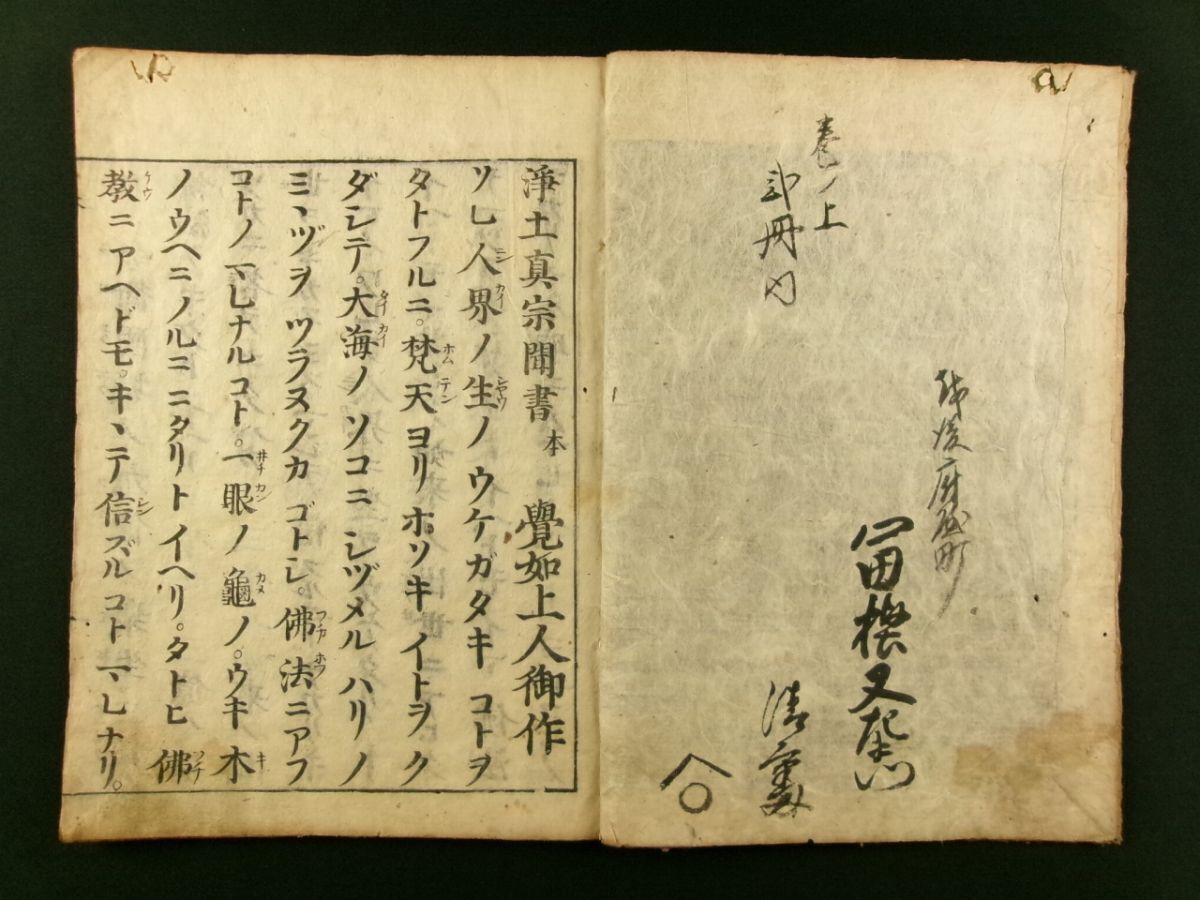 巻ノ上
弐冊内
府内町
富田機又
浄土真宗聞書 本 覺如上人御作
ソレ人界ノ生ノウケガタキコトヲ
タトフルニ。梵天ヨリホソキイトヲク
ダシテ。大海ノソコニシヅメルハリノ
ミヽヅヲツラヌクカゴトシ。佛法ニアフ
コトノマレナルコト。一眼ノ龜ノ。ウキ木
ノウヘニノルニニタリトイヘリ。タトヒ佛
教ニアヘドモ。キヽテ信ズルコトマレナリ。